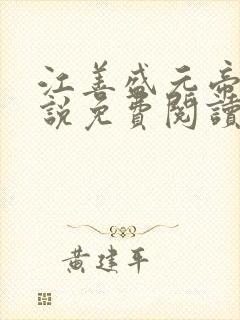 江善盛元帝
說免費閱讀
黃建平